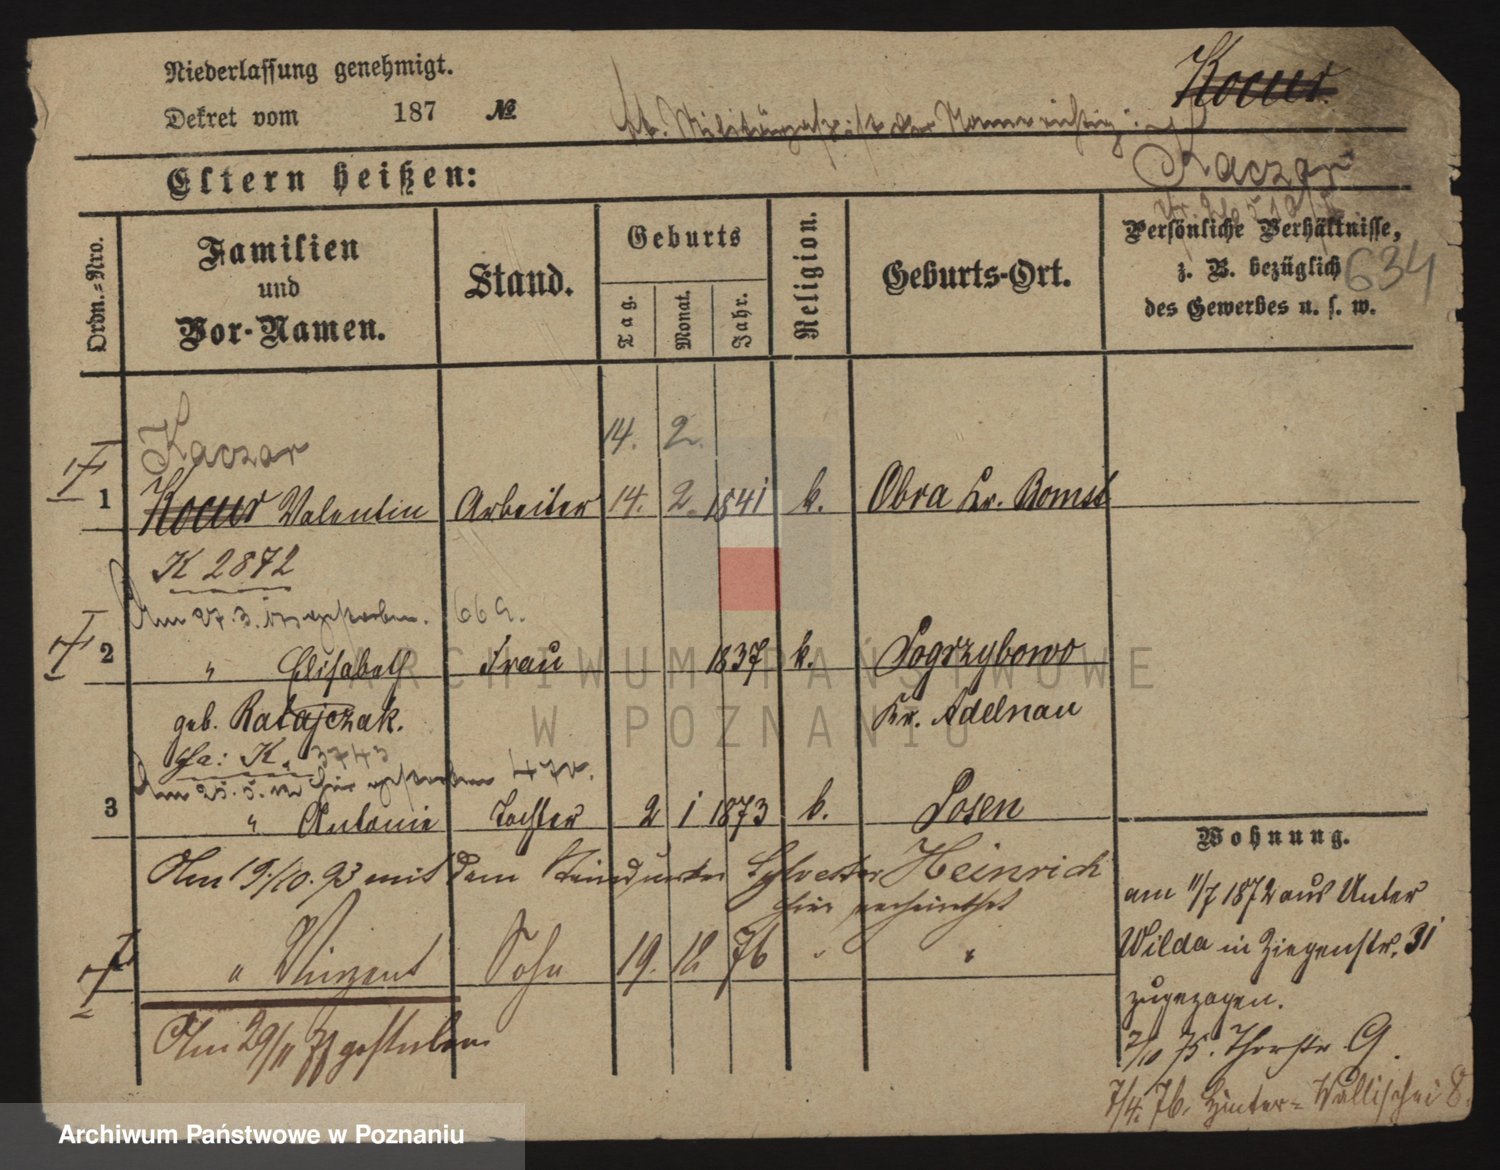 Niederlassung genehmigt.
Dekret vom 187 №
Kocur
lt. Militärpaß ist der Name richtig:
Kaczor
Eltern heißen:
634
Ordn.-Nro.
Familien und Vor-Namen.
Stand.
Geburts
Tag. Monat. Jahr.
Religion.
Geburts-Ort.
Persönliche Verhältnisse, z. B. bezüglich des Gewerbes u. s. w.
Kaczor 14. 2.
1 Kocur Valentin Arbeiter 14. 2. 1841 k. Obra Kr. Bomst
K 2872
Am 27.3. gestorben. 669.
2 " Elisabeth Frau 1837 k. Pogrzybowo
geb. Ratajczak. Kr. Adelnau
K. 3743
Am 25.5. hier gestorben 470.
3 " Antonie Tochter 2 1 1873 k. Posen
Am 19./10. 93 mit dem Sylvester Heinrich
hier verheirathet
" Vinzent Sohn 19. 12 76 " "
Am 29/11 77 gestorben
Wohnung.
am 11/7 1872 aus Unter
Wilda in Ziegenstr. 31
zugezogen.
2/10 75. Thorstr. 9.
7/4. 76. Hinter-Wallischei 8.
ARCHIWUM PAŃSTWOWE
W POZNANIU
Archiwum Państwowe w Poznaniu